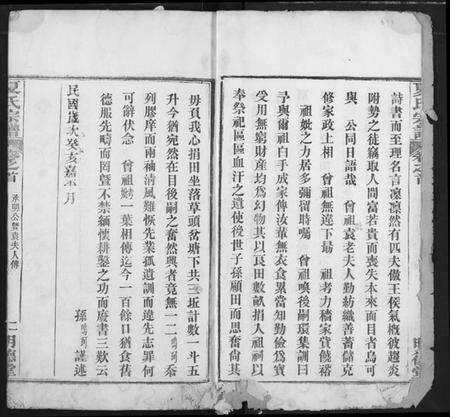 詩書而至理名言凜凜然有匹夫傲王侯氣槪彼趨炎
附勢之徒竊取人間富若貴而喪失本來面目者烏可
與 公同日語哉 曾祖袁老夫人勤紡織善蓄儲克
修家政上相 曾祖無遶下場 祖考力穡家貲饒裕
祖妣之力居多彌留時囑 曾祖喚後嗣環集訓曰
予與爾祖白手成家俾汝輩無衣食累當知勤儉爲寶
受用無窮財産均爲幻物其以良田數畝捐入祖祠以
奉祭祀區區血汗之遺使後世子孫顧田而思奮尙其
毋負我心捐田坐落草頭畓塘下共三坵計數一斗五
升今猶宛然在目後嗣之奮然興者竟無一二 忝
列膠庠而兩袖淸風難恢先業孤遺訓而違先志罪何
可辭伏念 曾祖 一葉相傳迄今一百餘口猶食舊
德服先疇而罔曁不禁緬懷耕鑿之功而廢書三歎云
孫 謹述
民國歲次癸亥嘉平月
夏氏宗譜
卷之首
承 公曁袁夫人傳
明德堂